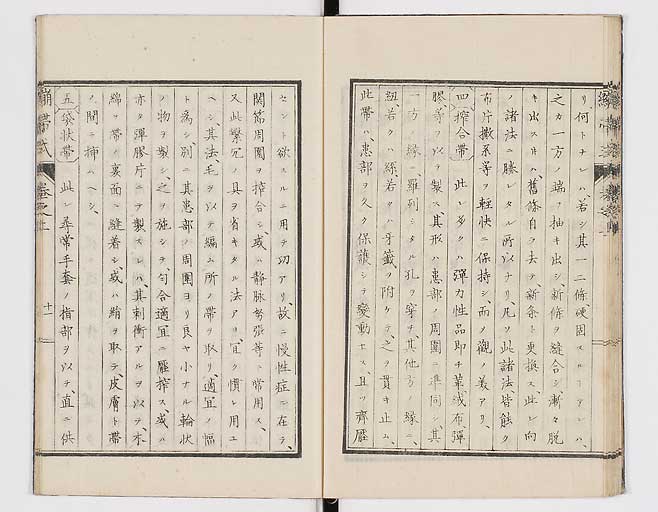 リ何トナレハ若シ其一二條、硬固スルトアレハ、
之カ一方ノ端ヲ抽キ出シ、新條ヲ縫合シ、漸々脱
キ出スキハ、舊條自ラ去テ新条ト更換ス、此レ向
ノ諸法ニ勝レタル所以ナリ、凡ソ此諸法皆蝕ク
布片撒糸等ヲ輕快ニ保持シ、而メ觀ノ美アリ、
四搾合帶 此レ多クハ彈力性品即チ革、絨布、彈
膠、等ヲ以テ製ス、其形ハ患部ノ周圍ニ準同シ、其
一方ノ緣ニ羅列シタル孔ヲ穿チ其他方ノ緣ニ、
紐若クハ綿、若クハ牙籤ヲ附ケテ、之ヲ貫キ止ム、
此帶ハ、患部ヲ久ク保護シテ變動セス、且ツ齊壓
セント欲スルニ用テ功アリ、故ニ慢性症ニ在テ、
関節周圍ヲ搾合シ、或ハ静脉努張等ニ常用ス、
又此繁冗ノ具ヲ省キタル法アリ、宜ク慣レ用ユ
ヘシ、其法、毛ヲ以テ編ム所ノ帶ヲ取リ、適宜ノ幅
ト為シ別ニ其患部ノ周圍ヨリ良ヤ小ナル輪状
ノ物ヲ製シ、之ヲ施シテ、匀合適宜ニ壓搾ス、或ハ
亦タ彈膠片ニテ製スレハ、其刺衝アルヲ以テ、木
綿ヲ帶ノ裏面ニ縫着シ或ハ絹ヲ取テ、皮膚ト帶
ノ間ニ挿ムヘシ、
五袋状帶 此レ尋常手套ノ指部ヲ以テ、直ニ供
繃帶式 卷之上 十一